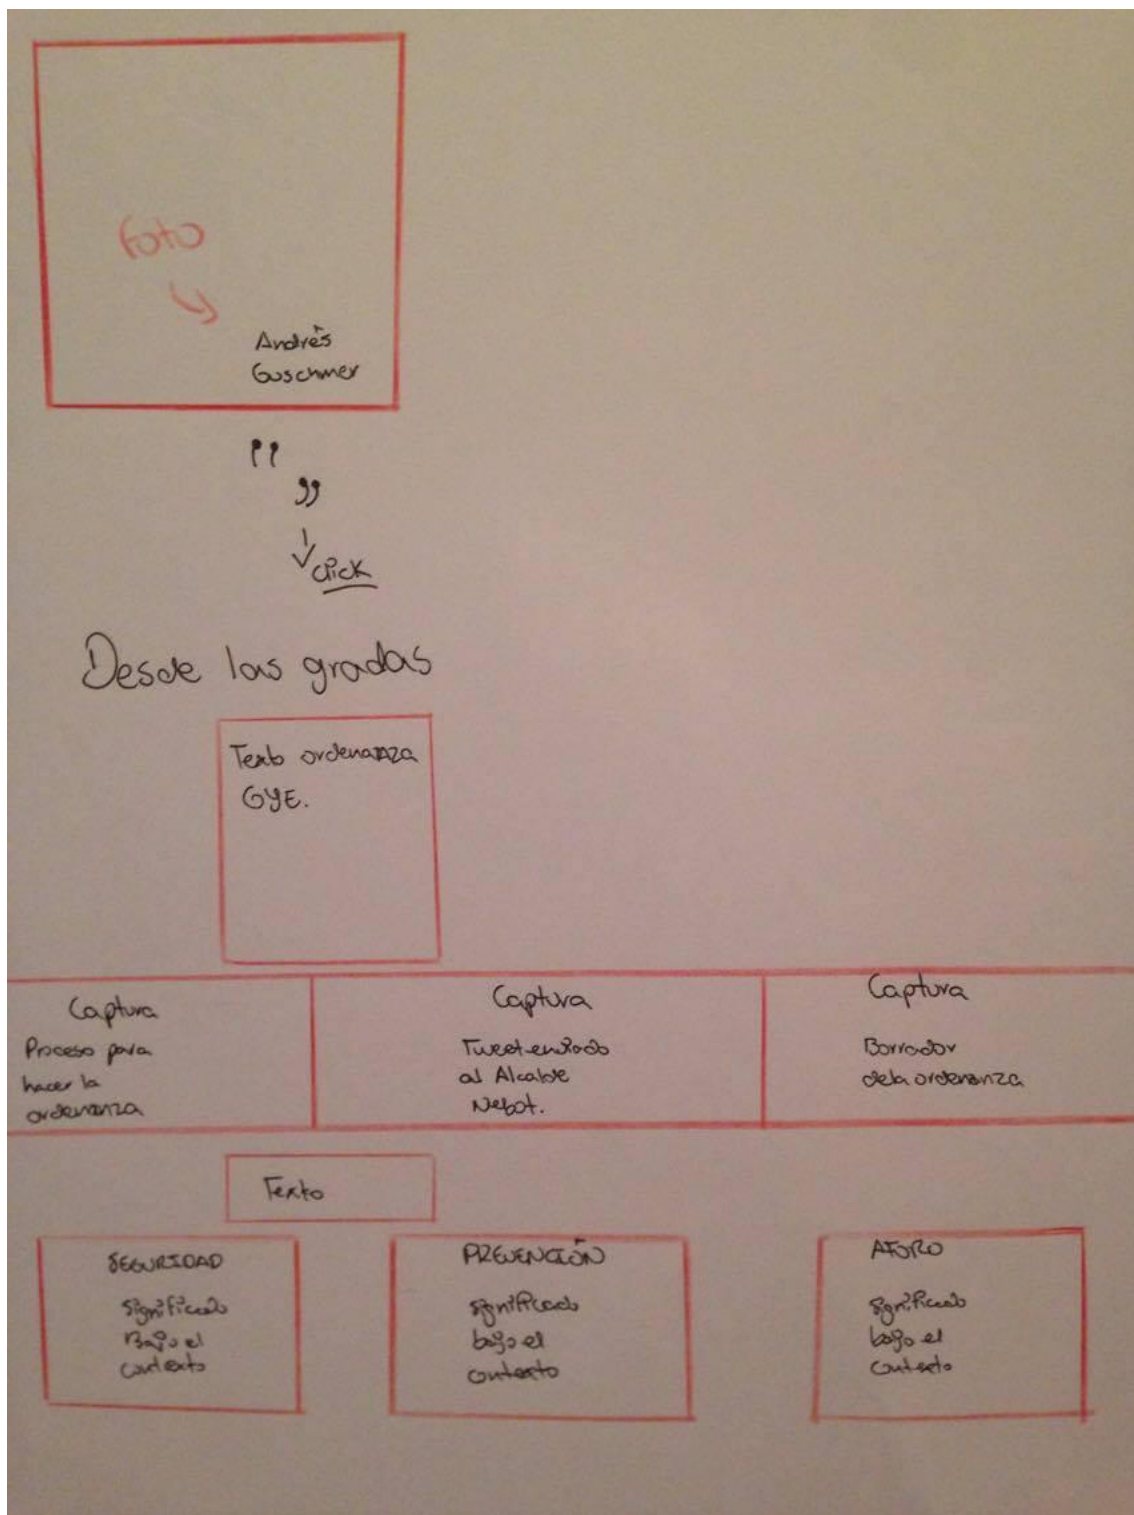 Foto
Andrés
Guschmer
" "
click
Desde las gradas
Texto ordenanza
GYE.
Captura
Proceso para
hacer la
ordenanza
Captura
Tweet enviado
al Alcalde
Nebot.
Captura
Borrador
de la ordenanza
Texto
SEGURIDAD
Significado
Bajo el
contexto
PREVENCIÓN
Significado
bajo el
contexto
AFORO
Significado
bajo el
contexto